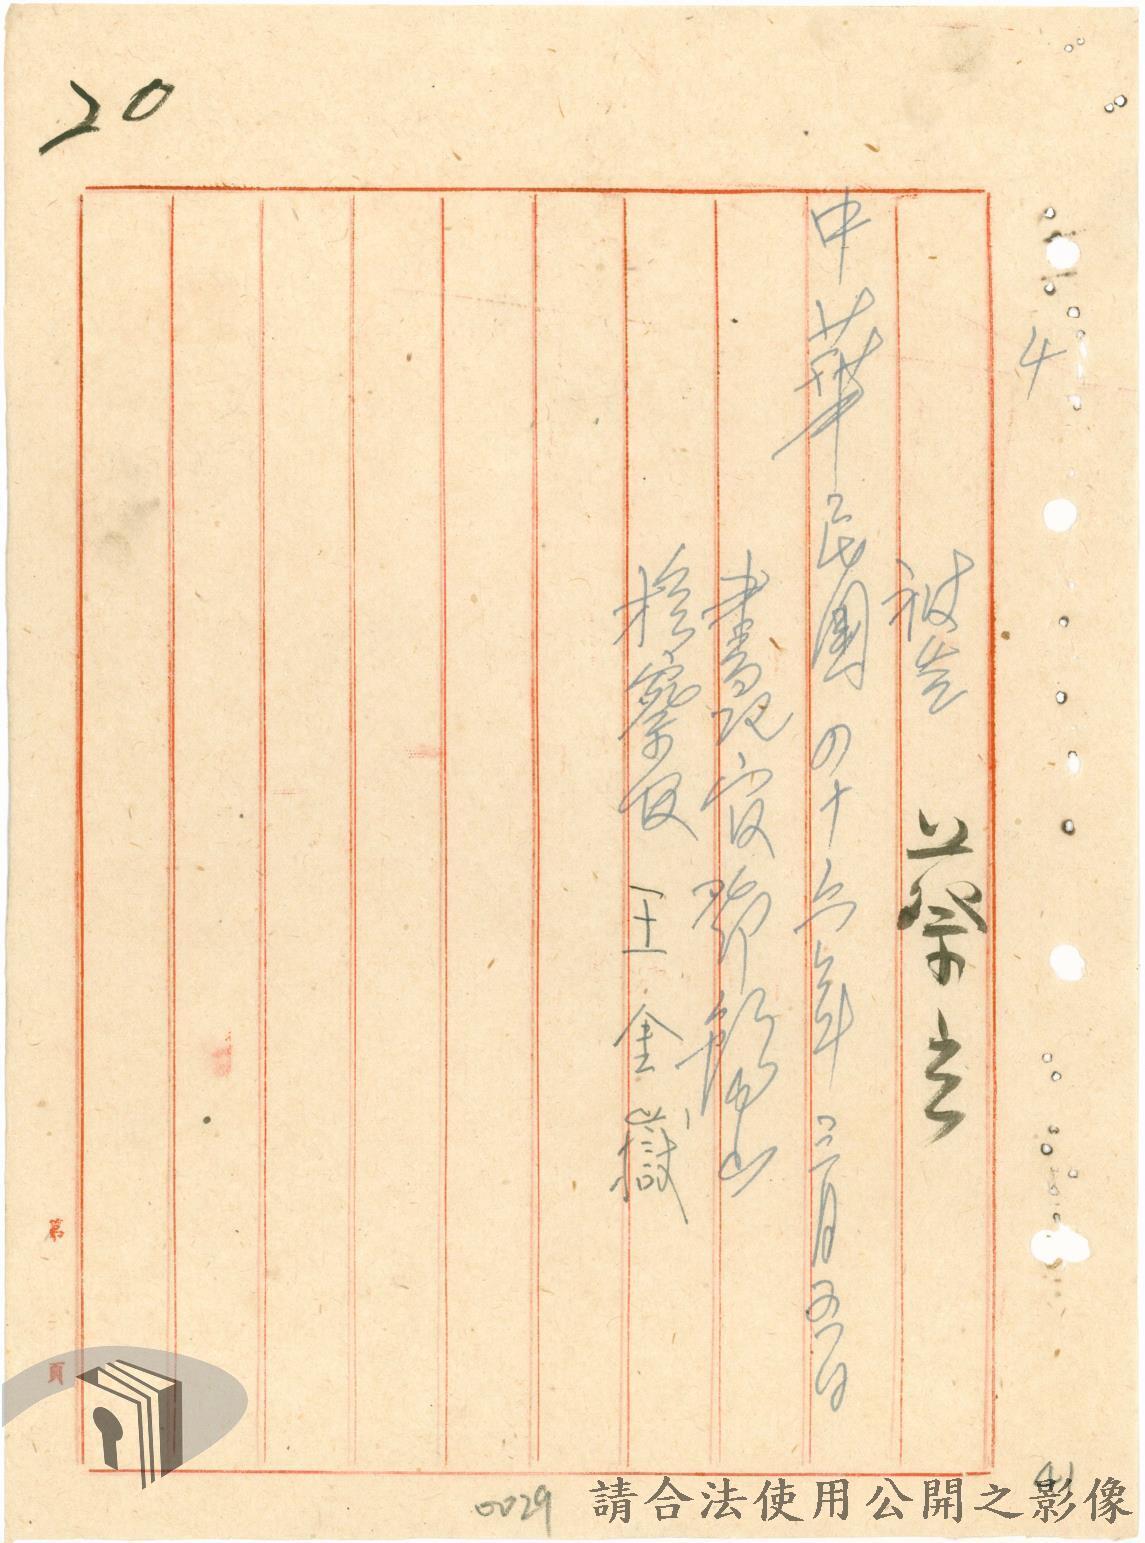 20
4
被告 蔡光
中華民國四十六年三月五日
書記官鄧錫山
檢察官 王金嶽
第 頁
41
0029
請合法使用公開之影像